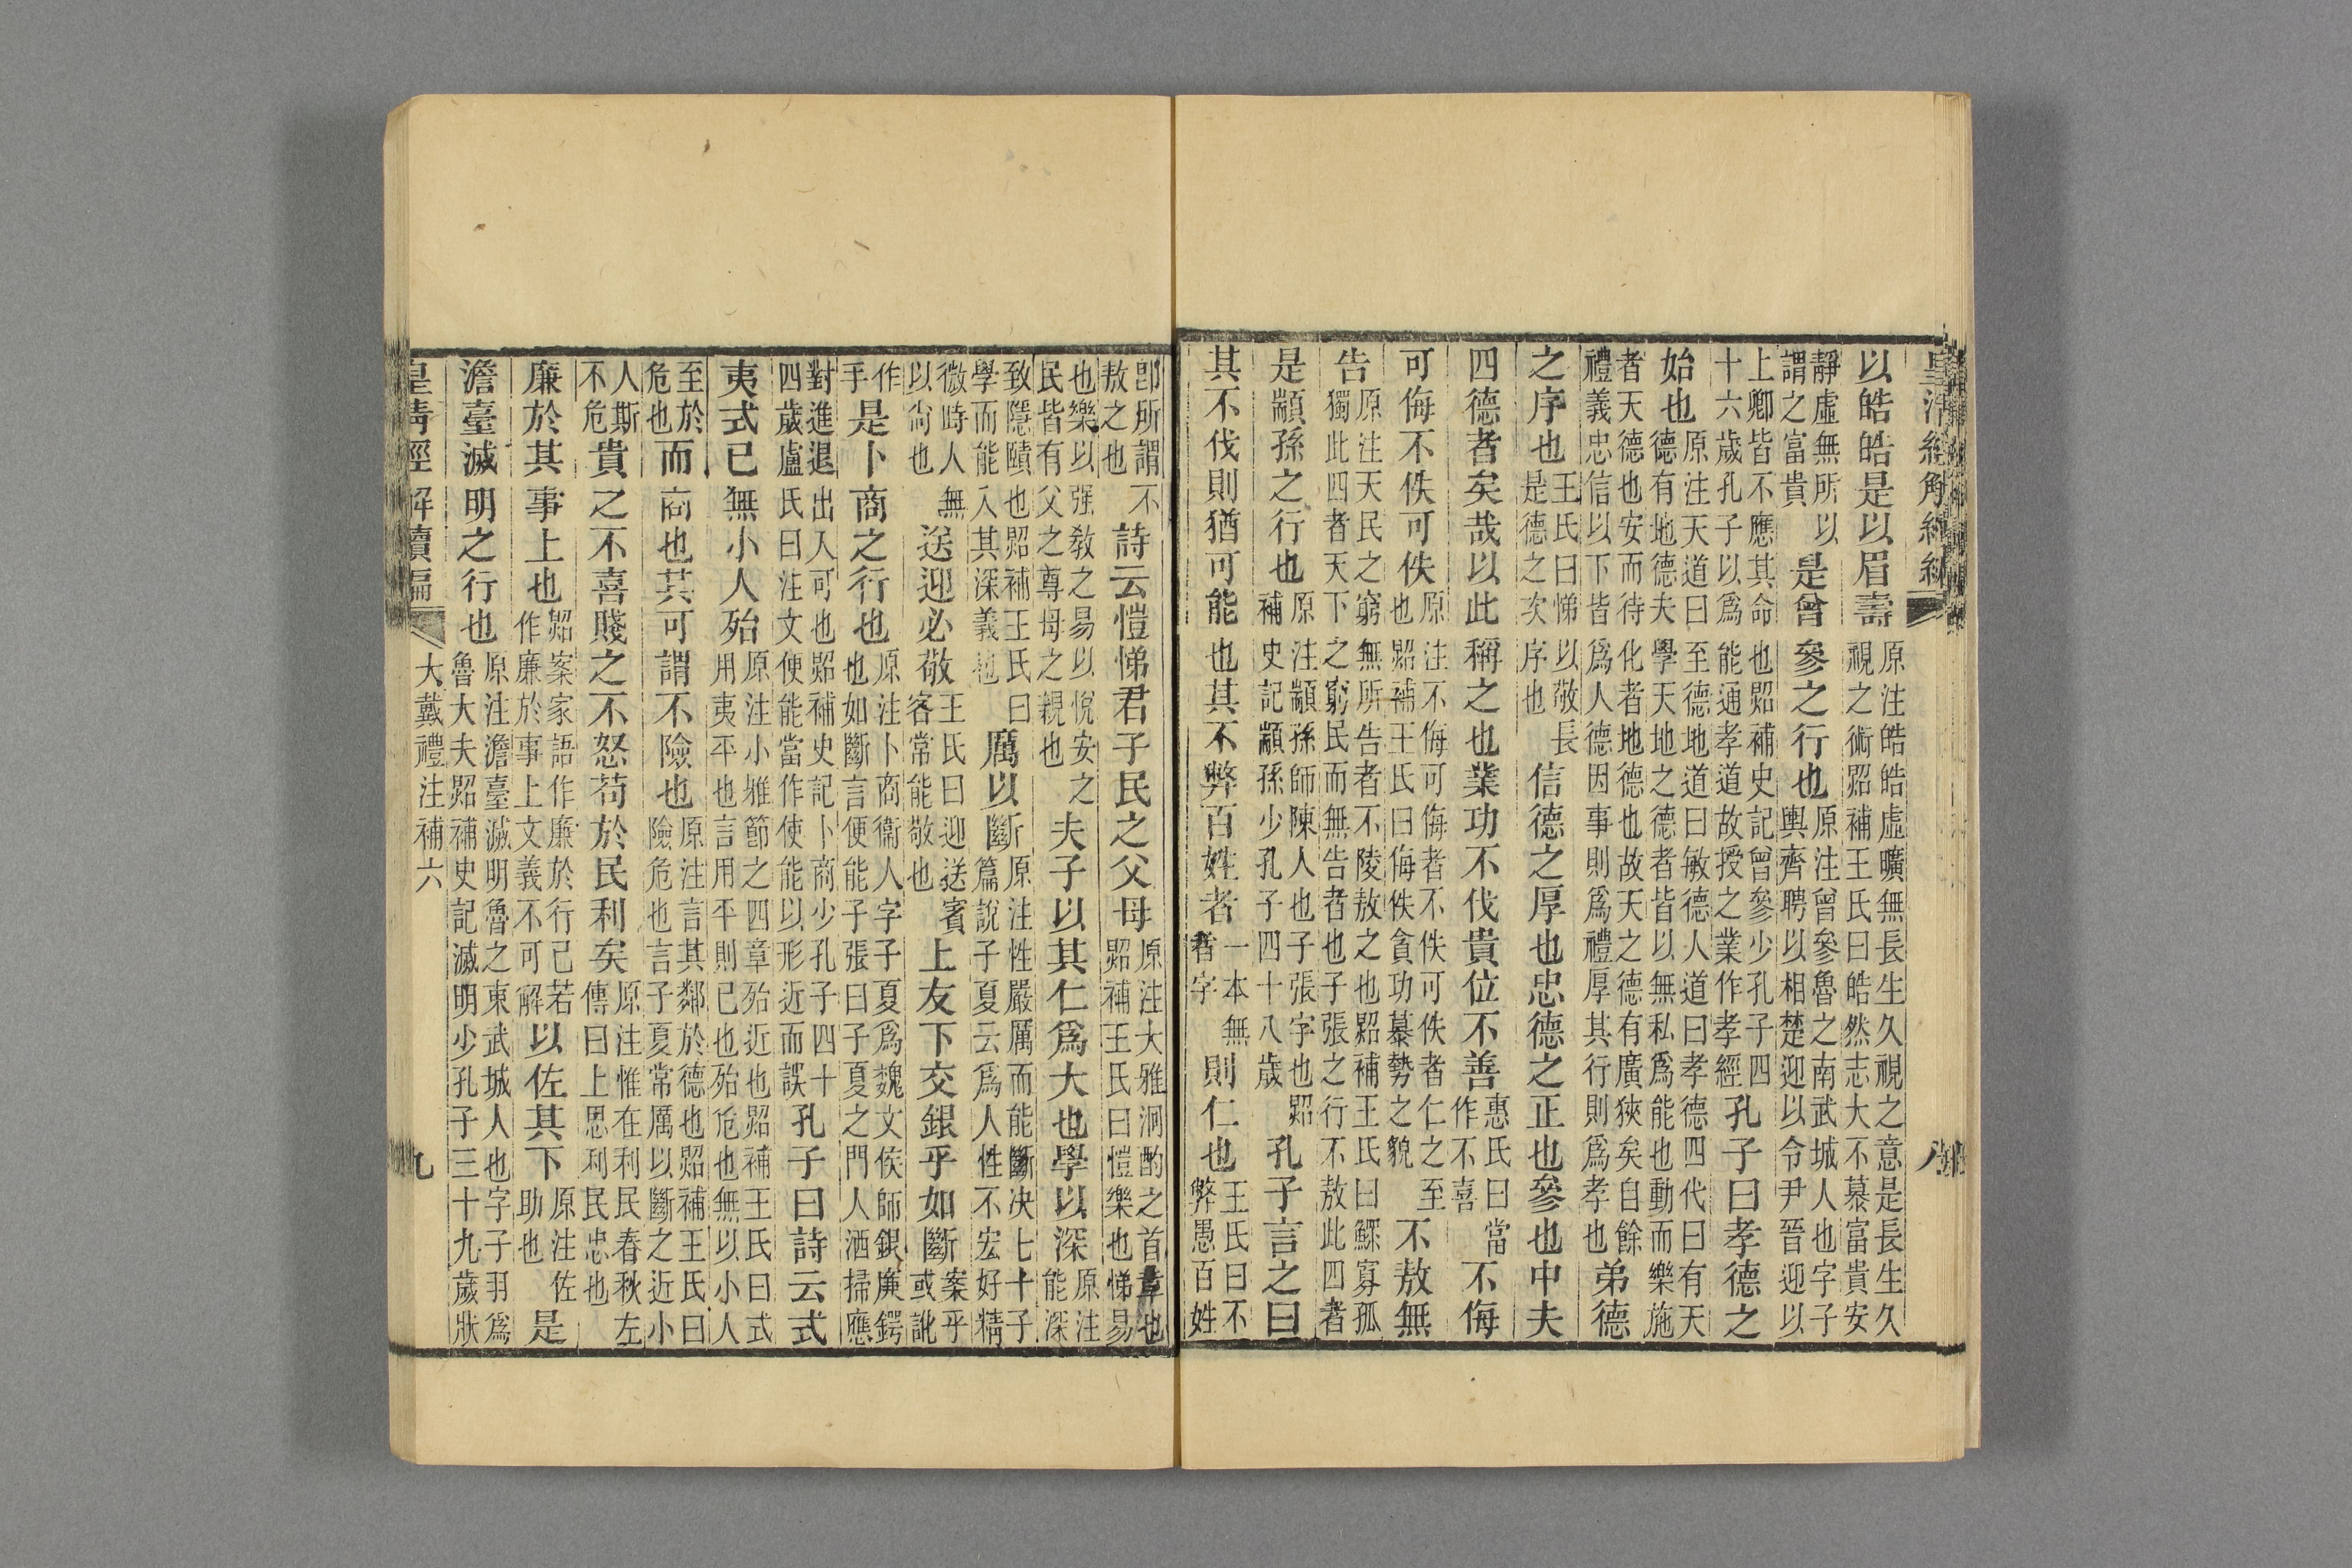 以皓皓是以眉壽原注皓皓虛曠無長生久視之意是長生久視之術照補王氏曰皓然志大不慕富貴安
靜虛無所以謂之富貴是曾參之行也原注曾參魯之南武城人也字子輿齊聘以相楚迎以令尹晉迎以
上卿皆不應其命也照補史記曾參少孔子四十六歲孔子以爲能通孝道故授之業作孝經孔子曰孝德之
始也原注天道曰至德地道曰敏德人道曰孝德四代曰有天德有地德夫學天地之德者皆以無私爲能也動而樂施
者天德也安而待化者地德也故天之德有廣狹矣自餘禮義忠信以下皆爲人德因事則爲禮厚其行則爲孝也弟德
之序也王氏曰悌以敬長是德之次序也信德之厚也忠德之正也參也中夫
四德者矣哉以此稱之也業功不伐貴位不善惠氏曰當作不喜不侮
可侮不佚可佚原注不侮可侮者不佚可佚者仁之至也照補王氏曰侮佚貪功慕勢之貌不敖無
告原注天民之窮無所告者不陵敖之也照補王氏曰鰥寡孤獨此四者天下之窮民而無告者也子張之行不敖此四者
是顓孫之行也原注顓孫師陳人也子張字也照補史記顓孫少孔子四十八歲孔子言之曰
其不伐則猶可能也其不弊百姓者一本無者字則仁也王氏曰不弊愚百姓
八
卽所謂不敖之也詩云愷悌君子民之父母原注大雅泂酌之首章也照補王氏曰愷樂也悌易
也樂以强敎之易以悅安之民皆有父之尊母之親也夫子以其仁爲大也學以深原注能深
致隱賾也照補王氏曰學而能入其深義也厲以斷原注性嚴厲而能斷決七十子篇說子夏云爲人性不宏好精
微時人無以尙也送迎必敬王氏曰迎送賓客常能敬也上友下交銀乎如斷案乎或訛
作手是卜商之行也原注卜商衞人字子夏爲魏文侯師銀廉鍔也如斷言便能子張曰子夏之門人洒掃應
對進退出入可也照補史記卜商少孔子四十四歲盧氏曰注文便能當作使能以形近而誤孔子曰詩云式
夷式已無小人殆原注小雅節之四章殆近也照補王氏曰式用夷平也言用平則已也殆危也無以小人
至於危也而商也其可謂不險也原注言其鄰於德也照補王氏曰險危也言子夏常厲以斷之近小
人斯不危貴之不喜賤之不怒苟於民利矣原注惟在利民春秋左傳曰上思利民忠也
廉於其事上也照案家語作廉於行己若作廉於事上文義不可解以佐其下原注佐助也是
澹臺滅明之行也原注澹臺滅明魯之東武城人也字子羽爲魯大夫照補史記滅明少孔子三十九歲狀
皇淸經解續編　大戴禮注補六　九